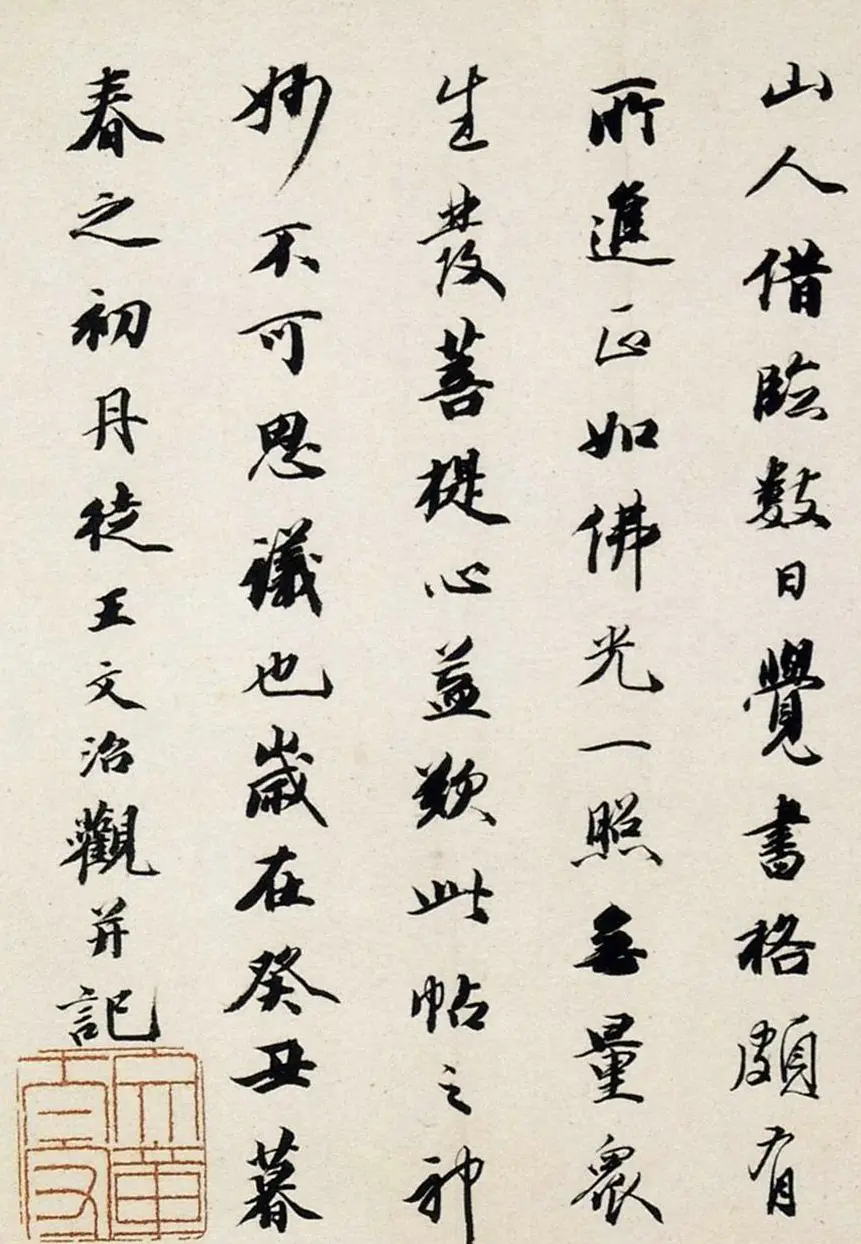 山人借臨數日覺書格頗有
所進正如佛光一照無量眾
生發菩提心益歎此帖之神
妙不可思議也歲在癸丑暮
春之初丹徒王文治觀并記